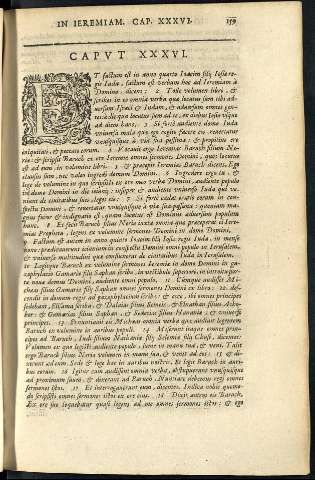 IN IEREMIAM. CAP. XXXVI. 159
CAPVT XXXVI.
ET factum est in anno quarto Ioacim filij Iosiæ re-
gis Iuda, factum est verbum hoc ad Ieremiam à
Domino, dicens: 2 Tolle volumen libri, &
scribes in eo omnia verba quæ locutus sum tibi ad-
uersum Israel & Iudam, & aduersum omnes gen-
tes: à die qua locutus sum ad te, ex diebus Iosiæ usque
ad diem hanc. 3 Si fortè audiente domo Iuda
uniuersa mala quæ ego cogito facere eis, reuertatur
unusquisque à via sua pessima: & propitius ero
iniquitati, & peccato eorum. 4 Vocauit ergo Ieremias Baruch filium Ne-
riæ: & scripsit Baruch ex ore Ieremiæ omnes sermones Domini, quos locutus
est ad eum in volumine libri. 5 & præcepit Ieremias Baruch dicens, Ego
clausus sum, nec valeo ingredi domum Domini. 6 Ingredere ergo tu, &
lege de volumine in quo scripsisti ex ore meo verba Domini, audiente populo
in domo Domini in die ieiunij: insuper & audiente uniuerso Iuda qui ve-
niunt de ciuitatibus suis leges eis: 7 Si fortè cadat oratio eorum in con-
spectu Domini, & reuertatur unusquisque à via sua pessima: quoniam ma-
gnus furor & indignatio est, quam locutus est Dominus aduersus populum
hunc. 8 Et fecit Baruch filius Neriæ iuxta omnia quæ præceperat ei Iere-
mias Propheta, legens ex volumine sermones Domini in domo Domini.
9 Factum est autem in anno quinto Ioacim filij Iosiæ regis Iuda, in mense
nono: prædicauerunt ieiunium in conspectu Domini omni populo in Ierusalem,
& uniuersæ multitudini quæ confluxerat de ciuitatibus Iuda in Ierusalem.
10 Legitque Baruch ex volumine sermones Ieremiæ in domo Domini in ga-
zophylacio Gamariæ filij Saphan scribæ, in vestibulo superiori, in introitu por-
tæ nouæ domus Domini, audiente omni populo. 11 Cumque audisset Mi-
chæas filius Gamariæ filij Saphan omnes sermones Domini ex libro, 12 des-
cendit in domum regis ad gazophylacium scribæ: & ecce, ibi omnes principes
sedebant, Elisama scriba: & Dalaias filius Semeiæ, & Elnathan filius Acho-
bor, & Gamarias filius Saphan, & Sedecias filius Hananiæ, & uniuersi
principes. 13 Et nuntiauit eis Michæas omnia verba quæ audiuit legentem
Baruch ex volumine in auribus populi. 14 Miserunt itaque omnes princi-
pes ad Baruch, Iudi filium Nathaniæ filij Selemiæ filij Chusi, dicentes:
Volumen ex quo legisti audiente populo, sume in manu tua, & veni. Tulit
ergo Baruch filius Neriæ volumen in manu sua, & venit ad eos: 15 & di-
xerunt ad eum Sede & lege hæc in auribus nostris. Et legit Baruch in auri-
bus eorum. 16 Igitur cum audissent omnia verba, obstupuerunt unusquisque
ad proximum suum, & dixerunt ad Baruch, Nuntiare debemus regi omnes
sermones istos. 17 Et interrogauerunt eum, dicentes: Indica nobis quomo-
do scripsisti omnes sermones istos ex ore eius. 18 Dixit autem eis Baruch,
Ex ore suo loquebatur quasi legens ad me omnes sermones istos: & ego